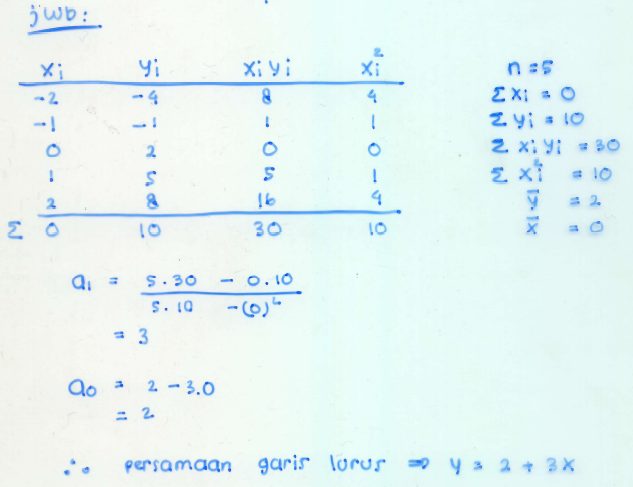 jwb:
xi yi xi yi xi²
-2 -4 8 4
-1 -1 1 1
0 2 0 0
1 5 5 1
2 8 16 4
Σ 0 10 30 10
n = 5
Σ xi = 0
Σ yi = 10
Σ xi yi = 30
Σ xi² = 10
ȳ = 2
x̄ = 0
a₁ = 5.30 - 0.10
5.10 -(0)²
= 3
a₀ = 2 - 3.0
= 2
∴ persamaan garis lurus ⇒ y = 2 + 3x